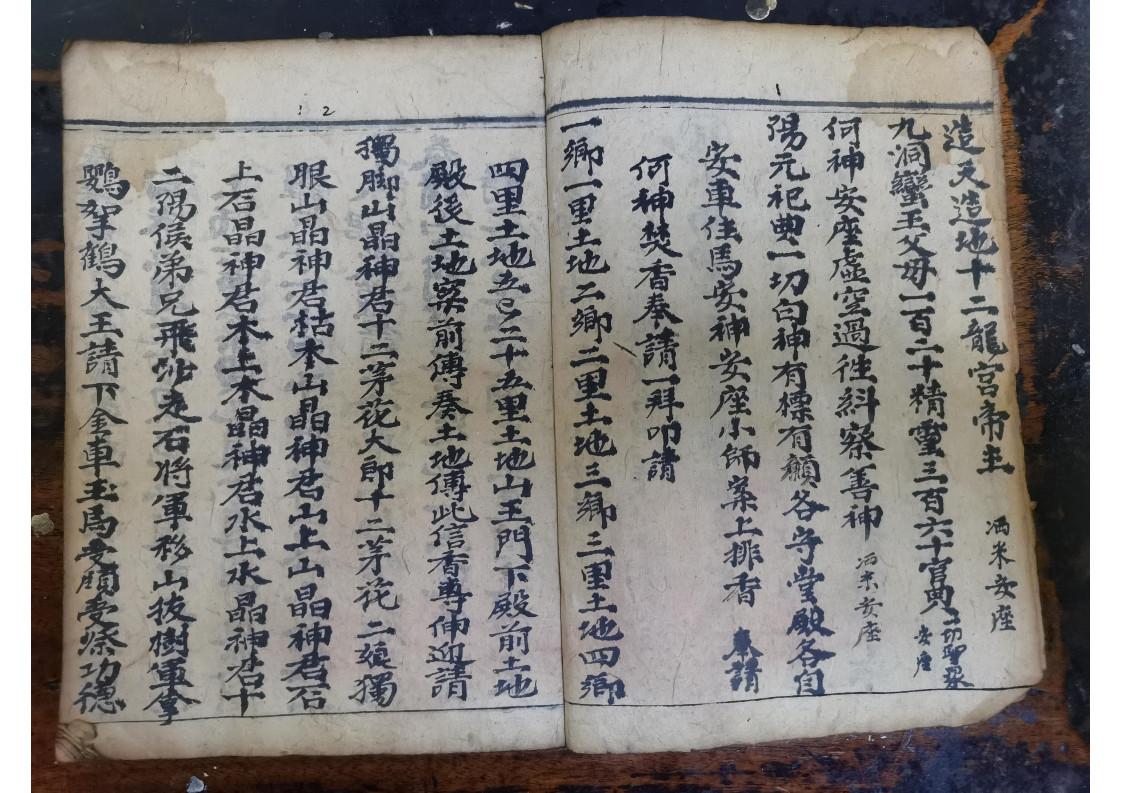 1
造天造地十二龍宮帝主 洒米安座
九洞蠻王父母一百二十精靈三百六十宮典一切聖眾 安座
何神安座虛空過往糾察善神 洒米安座
陽元祀典一切白神有標有願各守堂殿各自
安車住馬安神安座小師案上排香 奉請
何神焚香奉請一拜叩請
一鄉一里土地二鄉二里土地三鄉三里土地四鄉
2
四里土地五〻二十五里土地山王門下殿前土地
殿後土地案前傳奏土地傳此信香專伸迎請
獨脚山晶神君十二茅花大郎十二茅花二娘獨
眼山晶神君枯木山晶神君山上山晶神君石
上石晶神君木上木晶神君水上水晶神君十
二陽侯弟兄飛沙走石將軍移山拔樹軍拿
鷃拏鶴大王請下金車玉馬受領受祭功德